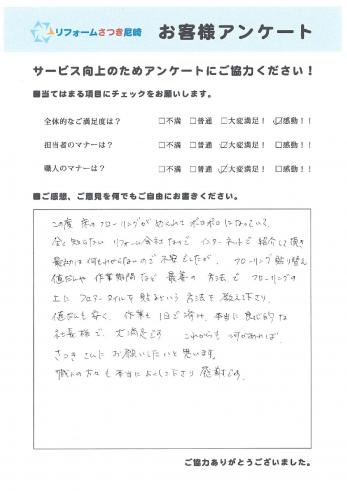 リフォームさつき尼崎 お客様アンケート
サービス向上のためアンケートにご協力ください！
■当てはまる項目にチェックをお願いします。
全体的なご満足度は？ □不満 □普通 □大変満足！ ☑感動！！
担当者のマナーは？ □不満 □普通 ☑大変満足！ □感動！！
職人のマナーは？ □不満 □普通 ☑大変満足！ □感動！！
■ご感想、ご意見を何でもご自由にお書きください。
この度 床のフローリングが めくれて ボロボロ になっていて、
全く知らない リフォーム会社なので、インターネットで 紹介して頂き
最初は 何もわからないので 不安でしたが、フローリング 貼り替え
値段や 作業期間など 最善の 方法で フローリングの
上に フロアータイルを 貼るという 方法を 教え下さり、
値段も安く、作業も 1日で済け、本当に 良心的な
社長様で、大満足です これからも 何かあれば、
さつきさんに お願いしたいと思います。
職人の方々も 本当に よくして下さり 感謝です。
ご協力ありがとうございました。